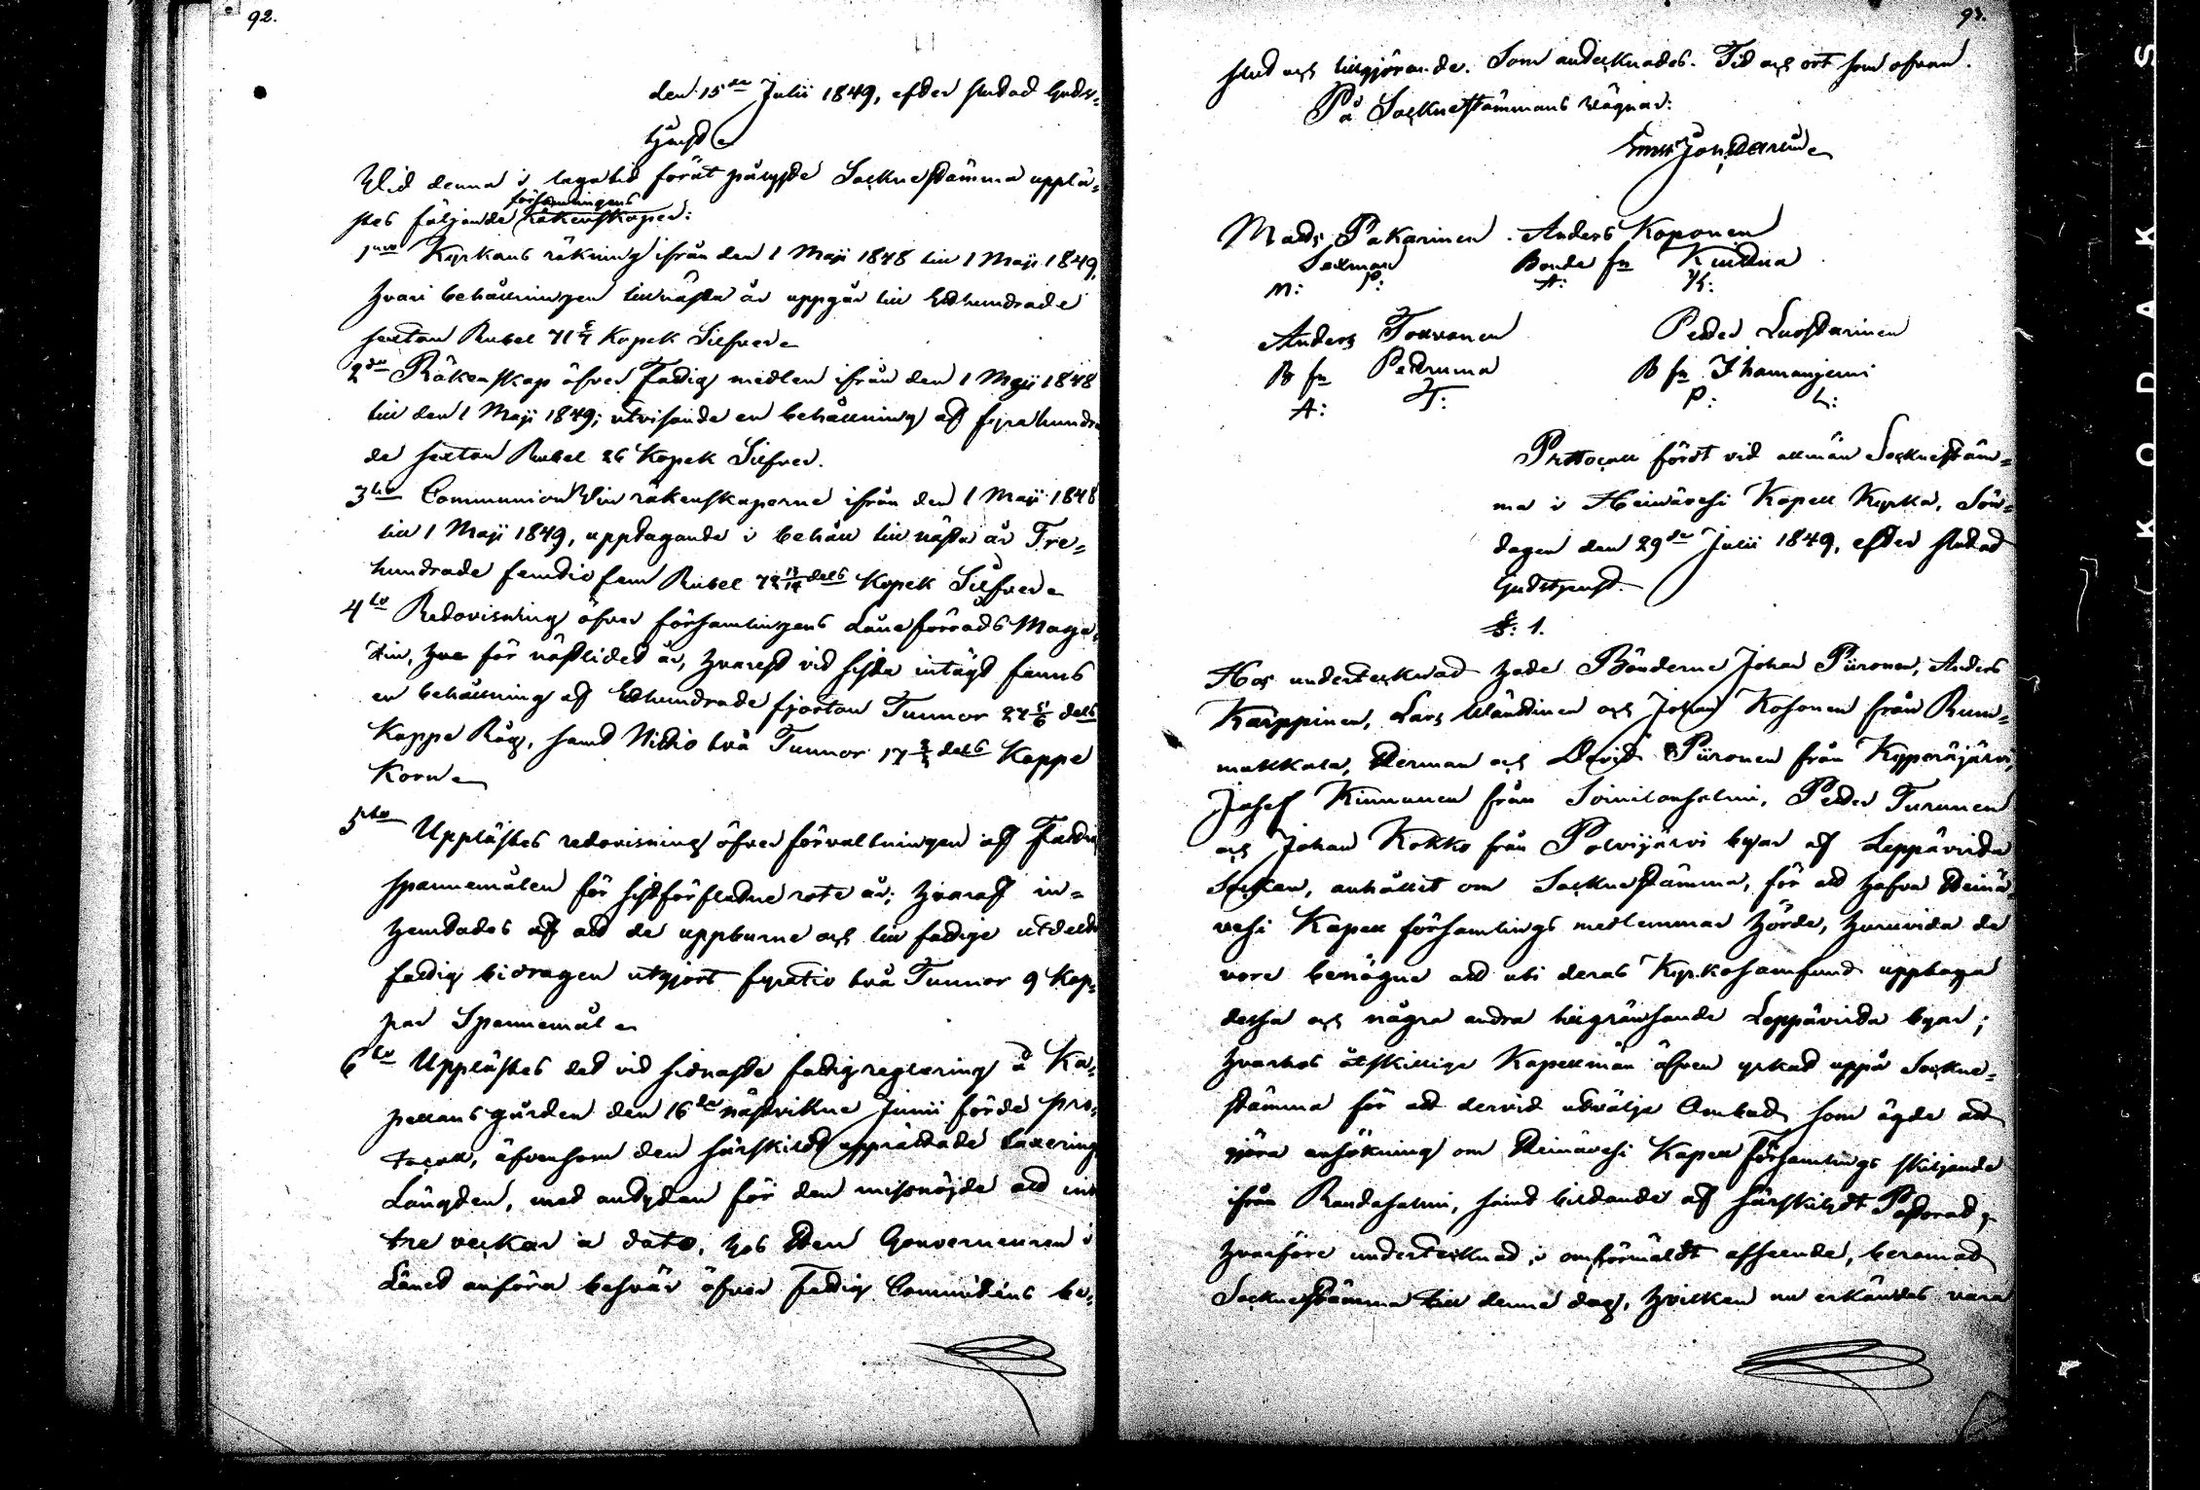 92.
den 15de Julii 1849, efter slutad Guds-
tjenst
Wid denna i lagatid förut pålyste Sockne stämma upplä-
stes följande församlingens räkenskaper:
1mo Kyrkans räkning ifrån den 1 Maji 1848 till 1 Maji 1849,
hvari behållningen till nästa år uppgår till Etthundrade
sexton Rubel 71 Kopek Silfver
2do Räkenskap öfver Fattig medlen ifrån den 1 Maji 1848
till den 1 Maji 1849; utvisande en behållning af fyrahundra
de sexton Rubel 26 Kopek Silfver.
3tio Communion Vin räkenskaperne ifrån den 1 Maji 1848
till 1 Maji 1849, upptagande i behåll till nästa år Tre-
hundrade femtio fem Rubel 72 dels Kopek Silfver
4to Redovisning öfver församlingens Låneförråds Maga-
zin, för nästlidet år, hvarest vid sista intägt fanns
en behållning af Etthundrade fjorton Tunnor 27 5/6 dels
Kappe Råg, samt Nittio två Tunnor 17 dels Kappe
Korn
5to Upplästes redovisning öfver förvaltningen af Fattig
spannemålen för sistförflutne rote år; hvaraf in-
hemtades af att de uppburne och till fattige utdelte
fattig bidragen utgjort fyratio två Tunnor 9 Kap-
par Spannemål
6to Upplästes det vid sidnaste fattigreglering å Ka-
pellansgården den 16de nästvikne Junii förde pro-
tocoll, äfvensom den särskildt upprättade taxering
Längden, med antydan för den missnöjde att inom
tre veckor a dato, hos Herr Gouverneuren i
Länet anföra besvär öfver fattig Committéns be-
93.
slut och tillgörande. Som antecknades. Tid och ort som ofvan.
På Sockne stämmans vägnar:
Mats Pakarinen. Anders Koponen
Sexman Bonde fn
M: P: A: K:
Anders Torvonen Petter Luostarinen
B fn Petruma B fn Ihamanjemi
A: T: P: L:
Protocoll fördt vid allmän Sockne stäm-
ma i Heinävesi Kapell Kyrka, Sön-
dagen den 29de Julii 1849, efter slutad
Gudstjenst.
§: 1.
Hos undertecknad hade Bönderne Johan Piironen, Anders
Karppinen, Lars Wänttinen och Johan Kosonen från Rum-
mukkala, Herman och David Piironen från Kypäräjärvi,
Josef Kinnunen från Soinilansalmi, Petter Turunen
och Johan Kokko från Polvijärvi byar af Leppävirta
Socken, anhållit om Sockne stämma, för att hafva Heinä-
vesi Kapell församlings medlemmar hörde, huruvida de
vore benägne att uti deras Kyrkosamfund upptaga
dessa och några andra tillgränsande Leppävirta byar;
hvarhos åtskillige Kapellmän äfven yrkat uppå Sockne-
stämma för att dervid utvälja Ombud, som ägde att
göra ansökning om Heinävesi Kapell församlings skiljande
ifrån Randasalmi, samt bildande af särskildt Pastorat,
hvarföre undertecknad, i omförmäldt afseende, beramat
Sockne stämma till denna dag, hvilken nu erkändes vara
KODAK S